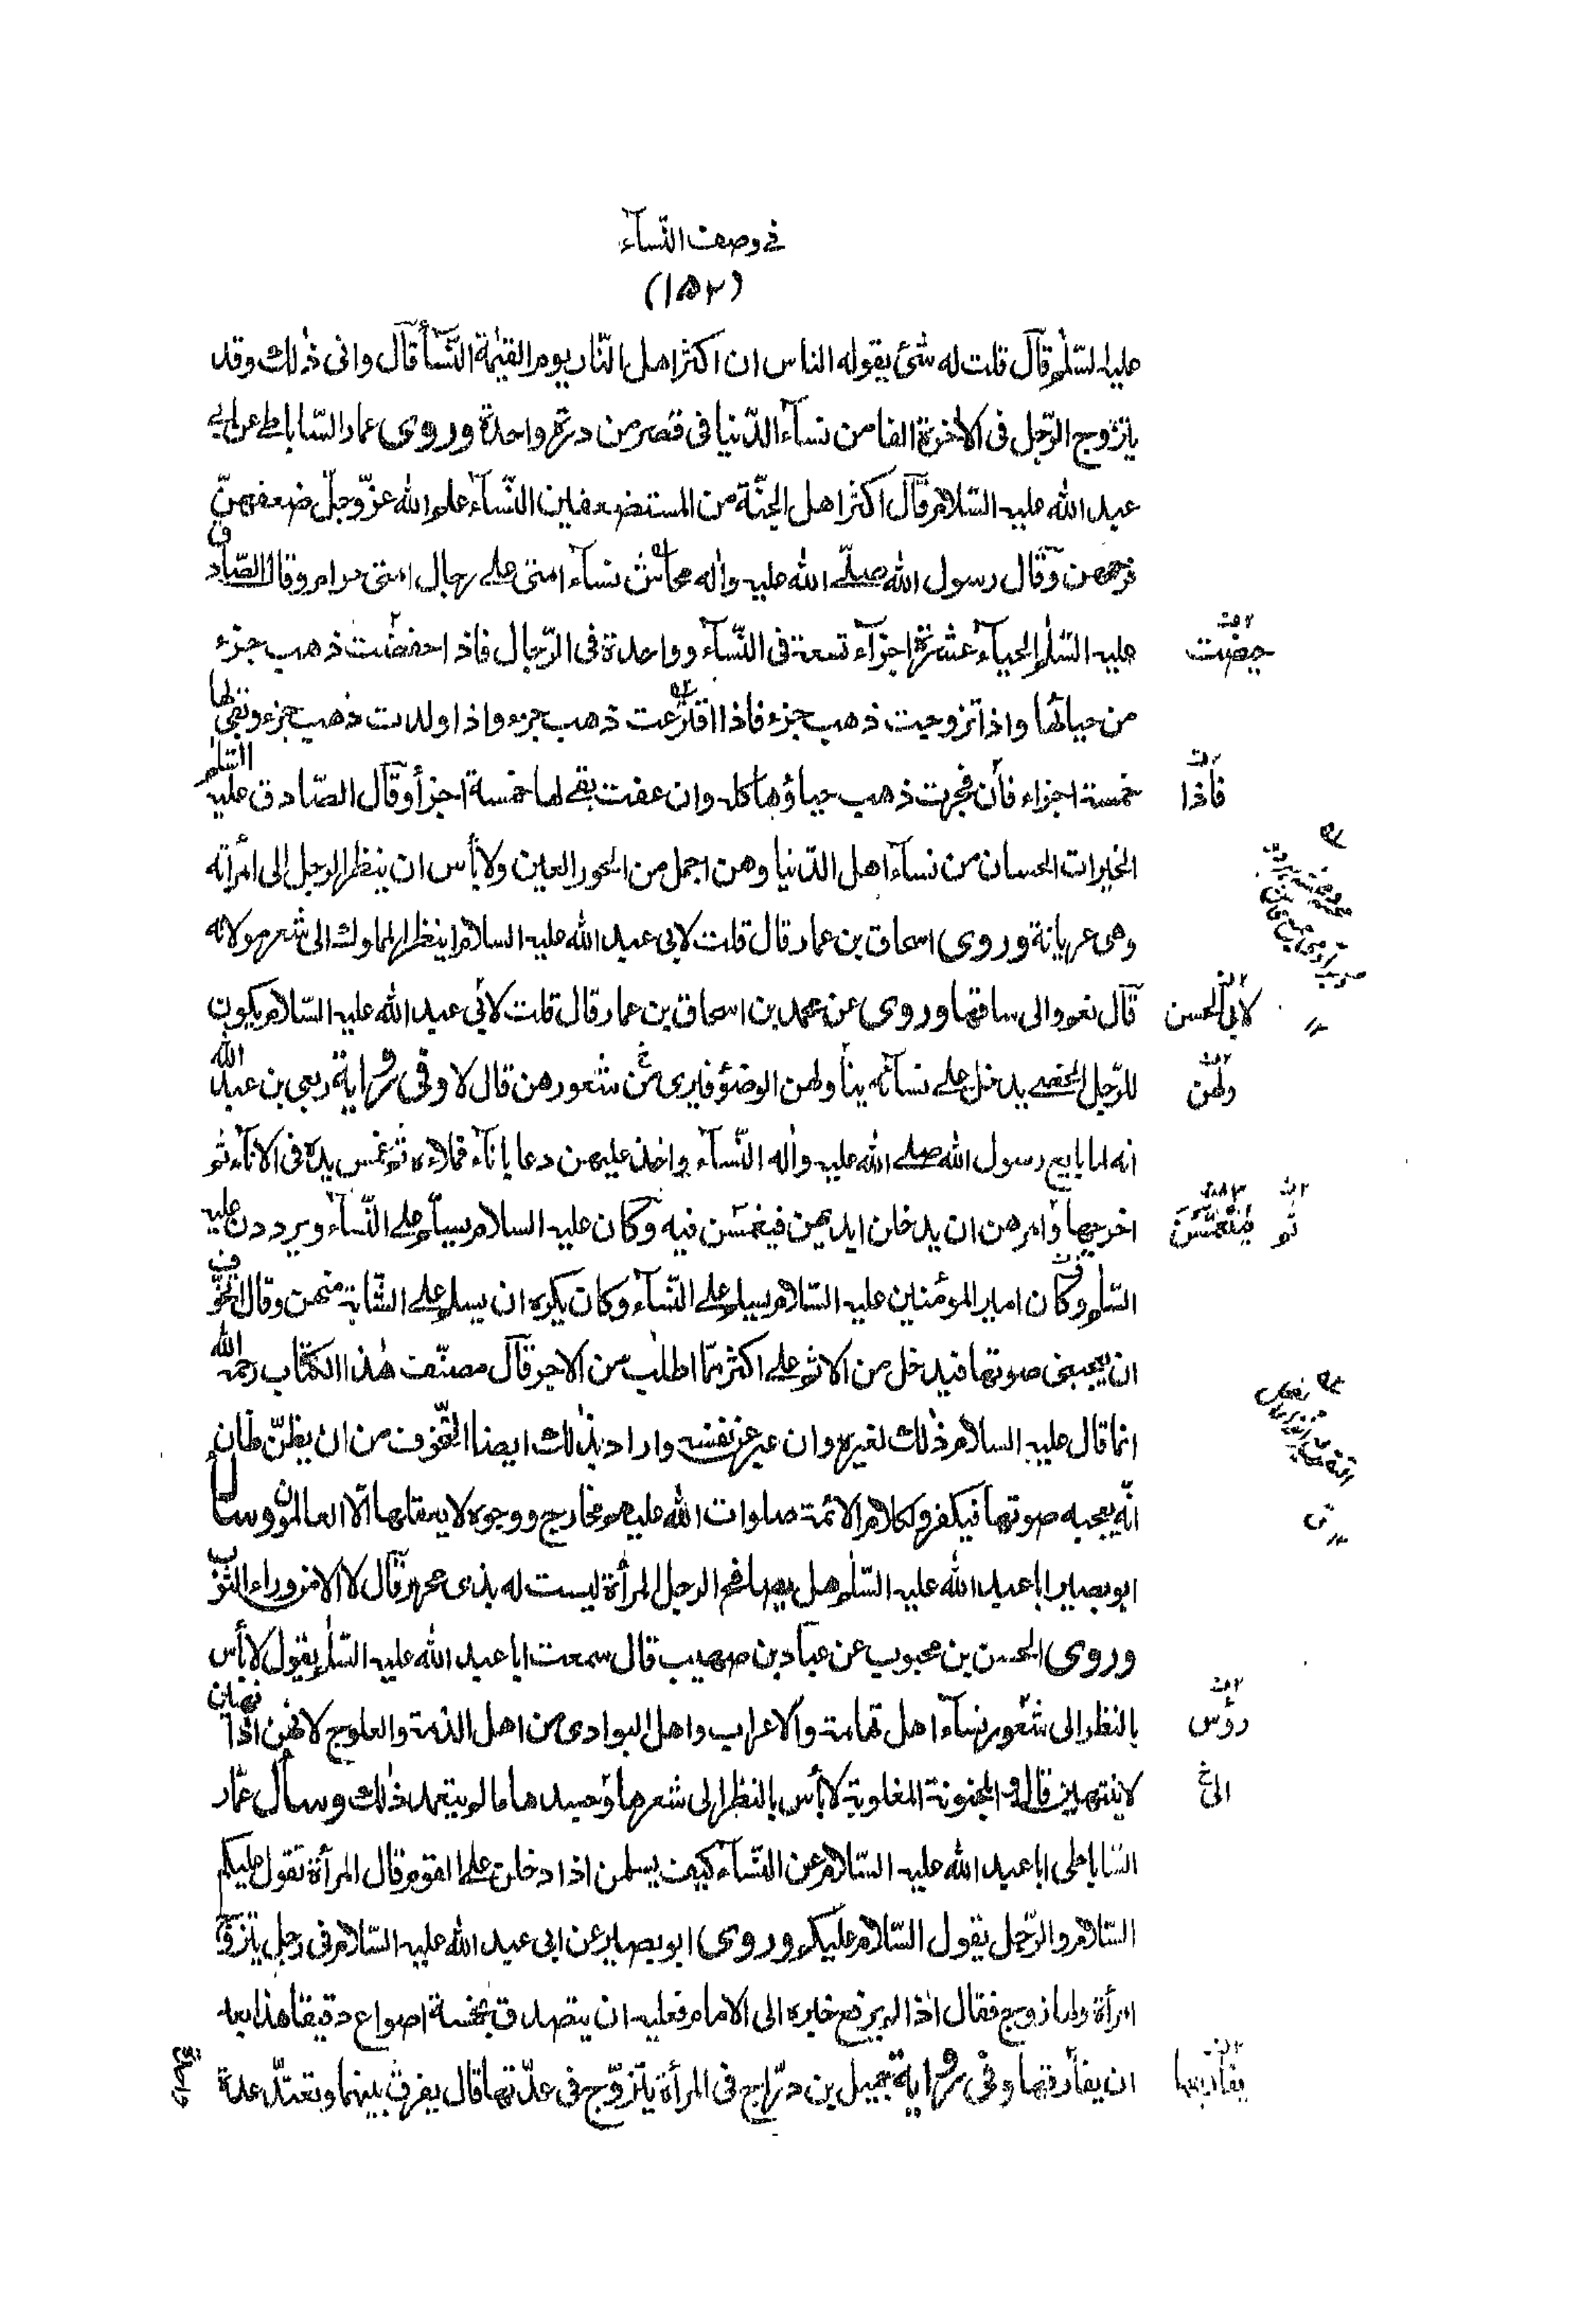 في وصف النسآء
(١٥٢)
عليه السّلم قآل قلت له شئ يقوله الناس ان اكثر اهل النّار يوم القيٰمة النّسآء قآل وانى ذٰلك وقد
يتزوج الرّجل فى الاٰخرة الفا من نسآء الدّنيا فى قصر من درّة واحدة وروى عمار السّاباطي عن ابي
عبد الله عليه السّلام قآل اكثر اهل الجنّة من المستضعفين النّسآء علم الله عزّ وجلّ ضعفهنّ
فرحمهن وقآل رسول الله صلّى الله عليه واٰله محاشّ نسآء امتى على رجال امتى حرام وقال الصّادق
عليه السّلٰم الحيآء عشرة اجزآء تسعة فى النّسآء وواحدة فى الرّجال فاذا خفضت ذهب جزء
حيضت
من حيائها واذا تزوجت ذهب جزء فاذا اقترعت ذهب جزء واذا ولدت ذهب جزء وبقي لها
خمسة اجزاء فأن فجرت ذهب حياؤها كله وان عفت بقي لها خمسة اجزأ وقآل الصّادق عليه السّلم
فاذا
الخيرات الحسان من نسآء اهل الدّنيا وهن اجمل من الحور العين ولا بأس ان ينظر الرجل الى امرأته
وهى عريانة وروى اسحاق بن عمار قال قلت لابى عبد الله عليه السلام اينظر المملوك الى شعر مولاته
قآل نعم والى ساقها وروى عن محمد بن اسحاق بن عمار قال قلت لابي عبد الله عليه السّلام يكون
لابى الحسن
للرّجل الخصي يدخل على نسآئه يناولهن الوضوٌ فيرى من شعورهن قال لا وفى رواية ربعى بن عبد الله
ولهنّ
انه لما بايع رسول الله صلى الله عليه واٰله النّسآء واخذ عليهن دعا باناء فملاءه ثم غمس يده فى الاناء ثم
اخرجها وامرهن ان يدخلن ايديهن فيغمسن فيه وكان عليه السلام يسلم على النّسآء ويرددن عليه
ثم فيغمسن
السّلم وكآن امير المؤمنين عليه السّلام يسلم على النّسآء وكان يكره ان يسلم على الشّابة منهن وقال اتخوّف
ان يعجبنى صوتها فيدخل من الاثم على اكثر ممّا اطلب من الاجر قآل مصنّف هٰذا الكتاب رحمه الله
انما قال عليه السلام ذٰلك لغيره وان عبر عن نفسه واراد بذٰلك ايضا التّخوف من ان يظنّ ظان
انّه يعجبه صوتها فيكفر ولكلام الائمة صلوات الله عليهم مخارج ووجوه لا يعقلها الّا العالمون وسأل
ابو بصير ابا عبد الله عليه السّلٰم هل يصافح الرجل المرأة ليست له بذى محرم قآل لا الا من وراء الثّوب
وروى الحسن بن محبوب عن عباد بن صهيب قال سمعت ابا عبد الله عليه السّلٰم يقول لا بأس
بالنظر الى شعور نسآء اهل تهامة والاعراب واهل البوادى من اهل الذمة والعلوج لانهن اذا نهين
رؤس
لا ينتهين قال والمجنونة المغلوبة لا بأس بالنظر الى شعرها وجسدها ما لم يتعمد ذٰلك وسأل عمّار
السّاباطى ابا عبد الله عليه السّلام عن النّسآء كيف يسلمن اذا دخلن على القوم قال المرأة تقول عليكم
السّلام والرّجل يقول السّلام عليكم وروى ابو بصير عن ابى عبد الله عليه السّلام فى رجل يتزوّج
امرأة ولها زوج فقال اذا لم يرفع خبره الى الامام فعليه ان يتصدق بخمسة اصواع دقيقا هذا بعد
ان يفارقها وفى رواية جميل بن درّاج فى المرأة يتزوّج فى عدّتها قال يفرق بينهما وتعتدّ عدة
يفارقها
واحدة